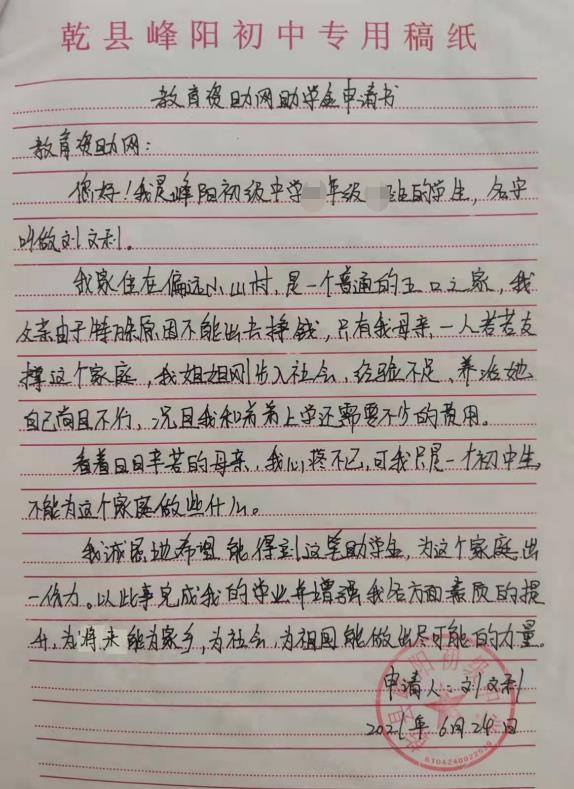 乾县峰阳初中专用稿纸
教育资助网助学金申请书
教育资助网：
您好！我是峰阳初级中学 年级 班的学生，名字
叫做刘文利。
我家住在偏远小山村，是一个普通的五口之家，我
父亲由于特殊原因不能出去挣钱，只有我母亲一人苦苦支
撑这个家庭，我姐姐刚步入社会，经验不足，养活她
自己尚且不行，况且我和弟弟上学还需要不少的费用。
看着日日辛苦的母亲，我心疼不已，可我只是一个初中生，
不能为这个家庭做些什么。
我诚恳地希望能得到这笔助学金，为这个家庭出
一份力。以此事完成我的学业并增强我各方面素质的提
升，为将来能为家乡，为社会，为祖国能做出尽可能的力量。
申请人：刘文利
2021年6月29日
乾县峰阳初级中学